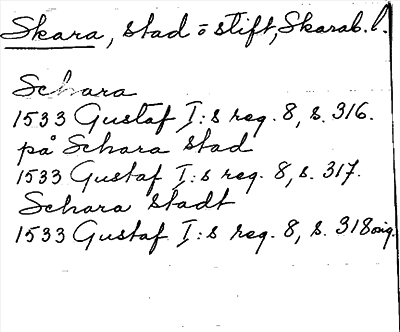 Skara, stad o stift, Skarab. l.
Schara
1533 Gustaf I:s reg. 8, s. 316.
på Schara stad
1533 Gustaf I:s reg. 8, s. 317.
Schara stadt
1533 Gustaf I:s reg. 8, s. 318